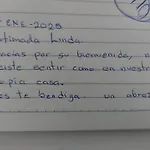 ENE-2025
stimada Linda.
acias por su bienvenida, n
ciste sentir como en nuestr
opia casa.
os te bendiga. un abraz